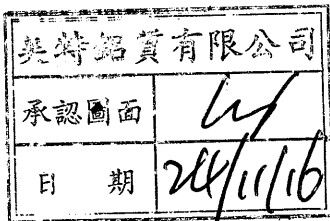 英特鋁質有限公司
承認圖面
日期 24/11/16